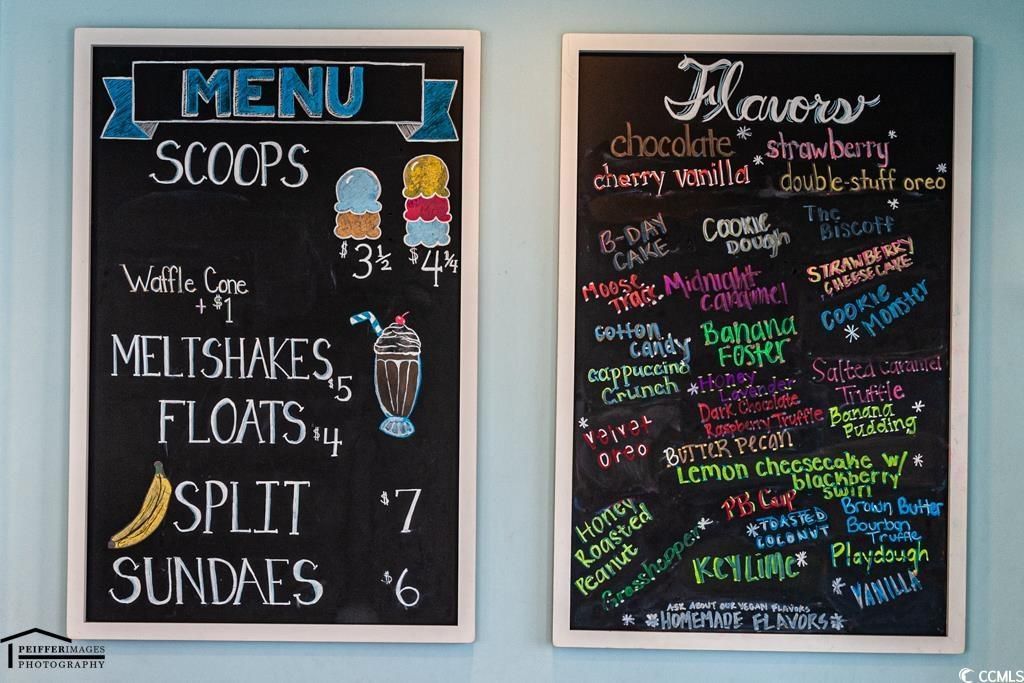 MENU
SCOOPS
$3 ½
$4 ¼
Waffle Cone
+ $1
MELTSHAKES $5
FLOATS $4
SPLIT $7
SUNDAES $6
Flavors
chocolate * strawberry *
cherry vanilla * double-stuff oreo *
B-DAY
CAKE
COOKIE
DOUGH
The
Biscoff
*
MOOSE
TRACK
Midnight
caramel
STRAWBERRY
CHEESECAKE
cotton
candy
Banana
FOSTER
COOKIE
MONSTER
*
cappuccino
crunch
* Honey
Lavender
Salted caramel
Truffle
*
Velvet
oreo
Dark Chocolate
Raspberry Truffle
Banana
Pudding
*
BUTTER PECAN
Lemon cheesecake w/
blackberry
swirl
*
Honey
Roasted
Peanut
PB CUP
Brown Butter
Bourbon
Truffle
Grasshopper *
*TOASTED
COCONUT
KEY LIME *
Playdough
* VANILLA
ASK ABOUT OUR VEGAN FLAVORS
* *HOMEMADE FLAVORS* *
PEIFFERIMAGES
PHOTOGRAPHY
CCMLS